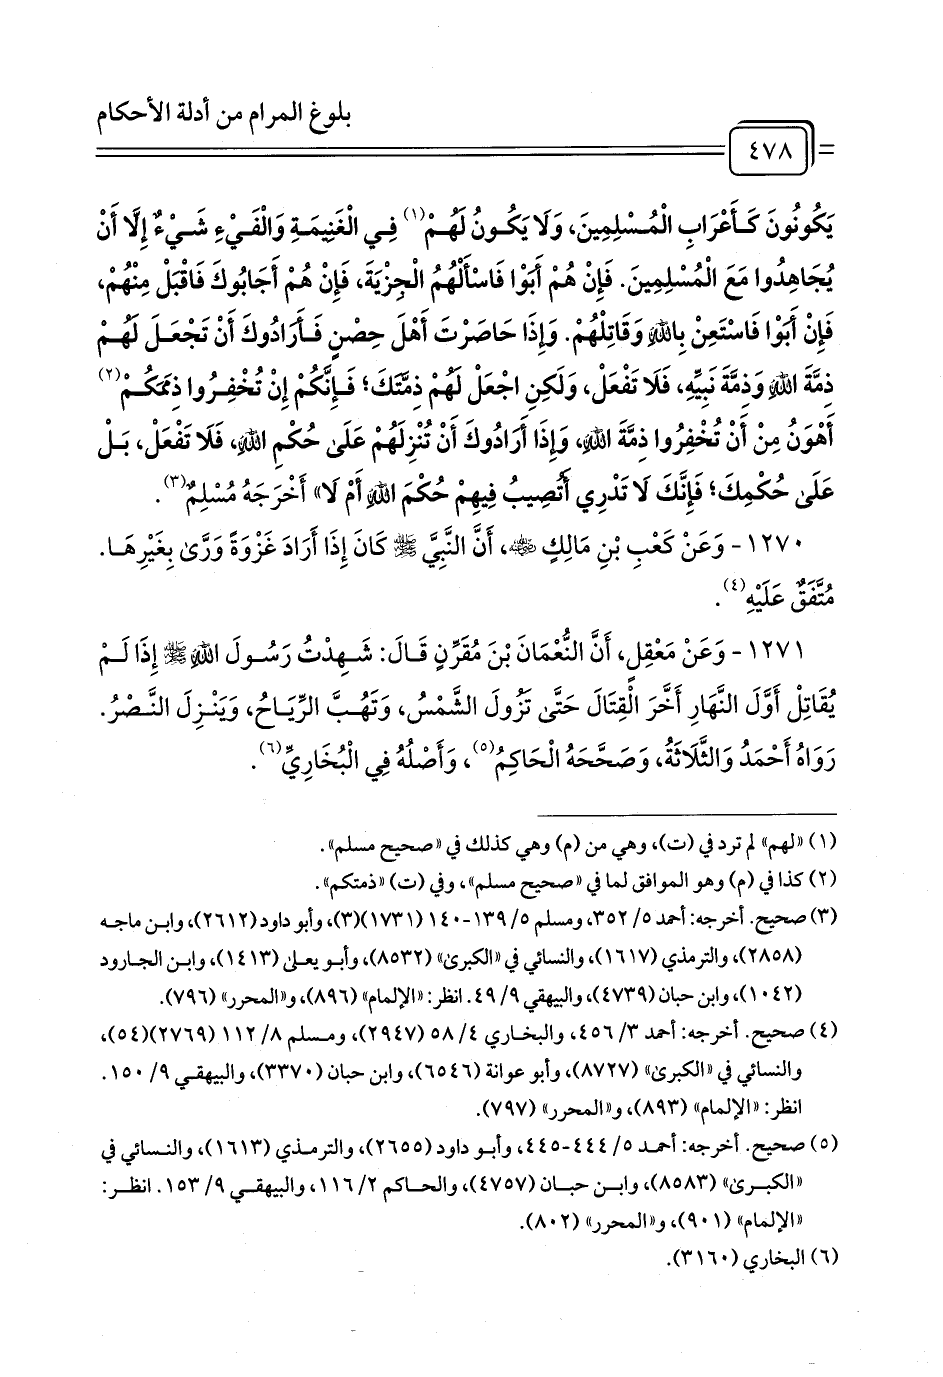 بلوغ المرام من أدلة الأحكام
٤٧٨
يَكُونُونَ كَأَعْرَابِ الْمُسْلِمِينَ، وَلَا يَكُونُ لَهُمْ(١) فِي الْغَنِيمَةِ وَالْفَيْءِ شَيْءٌ إِلَّا أَنْ
يُجَاهِدُوا مَعَ الْمُسْلِمِينَ. فَإِنْ هُمْ أَبَوْا فَاسْأَلْهُمُ الْجِزْيَةَ، فَإِنْ هُمْ أَجَابُوكَ فَاقْبَلْ مِنْهُمْ،
فَإِنْ أَبَوْا فَاسْتَعِنْ بِاللهِ وَقَاتِلْهُمْ. وَإِذَا حَاصَرْتَ أَهْلَ حِصْنٍ فَأَرَادُوكَ أَنْ تَجْعَلَ لَهُمْ
ذِمَّةَ اللهِ وَذِمَّةَ نَبِيِّهِ، فَلَا تَفْعَلْ، وَلَكِنِ اجْعَلْ لَهُمْ ذِمَّتَكَ؛ فَإِنَّكُمْ إِنْ تُخْفِرُوا ذِمَمَكُمْ(٢)
أَهْوَنُ مِنْ أَنْ تُخْفِرُوا ذِمَّةَ اللهِ، وَإِذَا أَرَادُوكَ أَنْ تُنْزِلَهُمْ عَلَىٰ حُكْمِ اللهِ، فَلَا تَفْعَلْ، بَلْ
عَلَىٰ حُكْمِكَ؛ فَإِنَّكَ لَا تَدْرِي أَتُصِيبُ فِيهِمْ حُكْمَ اللهِ أَمْ لَا» أَخْرَجَهُ مُسْلِمٌ(٣).
١٢٧٠- وَعَنْ كَعْبِ بْنِ مَالِكٍ ﵁، أَنَّ النَّبِيَّ ﷺ كَانَ إِذَا أَرَادَ غَزْوَةً وَرَّىٰ بِغَيْرِهَا.
مُتَّفَقٌ عَلَيْهِ(٤).
١٢٧١- وَعَنْ مَعْقِلٍ، أَنَّ النُّعْمَانَ بْنَ مُقَرِّنٍ قَالَ: شَهِدْتُ رَسُولَ اللهِ ﷺ إِذَا لَمْ
يُقَاتِلْ أَوَّلَ النَّهَارِ أَخَّرَ الْقِتَالَ حَتَّىٰ تَزُولَ الشَّمْسُ، وَتَهُبَّ الرِّيَاحُ، وَيَنْزِلَ النَّصْرُ.
رَوَاهُ أَحْمَدُ وَالثَّلَاثَةُ، وَصَحَّحَهُ الْحَاكِمُ(٥)، وَأَصْلُهُ فِي الْبُخَارِيِّ(٦).
(١) «لهم» لم ترد في (ت)، وهي من (م) وهي كذلك في «صحيح مسلم».
(٢) كذا في (م) وهو الموافق لما في «صحيح مسلم»، وفي (ت) «ذمتكم».
(٣) صحيح. أخرجه: أحمد ٥/ ٣٥٢، ومسلم ٥/ ١٣٩-١٤٠ (١٧٣١)(٣)، وأبو داود (٢٦١٢)، وابن ماجه
(٢٨٥٨)، والترمذي (١٦١٧)، والنسائي في «الكبرىٰ» (٨٥٣٢)، وأبو يعلىٰ (١٤١٣)، وابن الجارود
(١٠٤٢)، وابن حبان (٤٧٣٩)، والبيهقي ٩/ ٤٩. انظر: «الإلمام» (٨٩٦)، و«المحرر» (٧٩٦).
(٤) صحيح. أخرجه: أحمد ٣/ ٤٥٦، والبخاري ٤/ ٥٨ (٢٩٤٧)، ومسلم ٨/ ١١٢ (٢٧٦٩)(٥٤)،
والنسائي في «الكبرىٰ» (٨٧٢٧)، وأبو عوانة (٦٥٤٦)، وابن حبان (٣٣٧٠)، والبيهقي ٩/ ١٥٠.
انظر: «الإلمام» (٨٩٣)، و«المحرر» (٧٩٧).
(٥) صحيح. أخرجه: أحمد ٥/ ٤٤٤-٤٤٥، وأبو داود (٢٦٥٥)، والترمذي (١٦١٣)، والنسائي في
«الكبرىٰ» (٨٥٨٣)، وابن حبان (٤٧٥٧)، والحاكم ٢/ ١١٦، والبيهقي ٩/ ١٥٣. انظر:
«الإلمام» (٩٠١)، و«المحرر» (٨٠٢).
(٦) البخاري (٣١٦٠).